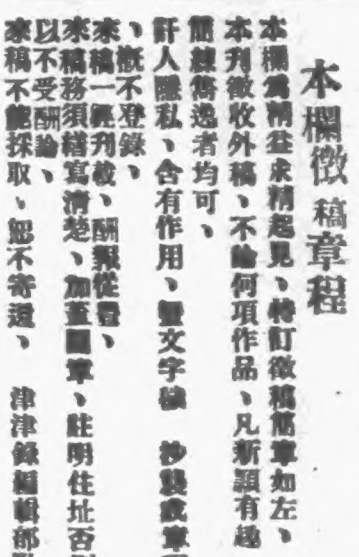 本欄徵稿章程
本欄爲精益求精起見、特訂徵稿簡章如左、
本刊徵收外稿、不論何項作品、凡新穎有趣
簡練雋逸者均可、
訐人隱私、含有作用、文字 抄襲或
、概不登錄、
來稿一經刊載、酬報從豐、
來稿務須繕寫清楚、加蓋圖章、註明住址否則
以不受酬論、
來稿不能採取、恕不寄還、 津津錄編輯部